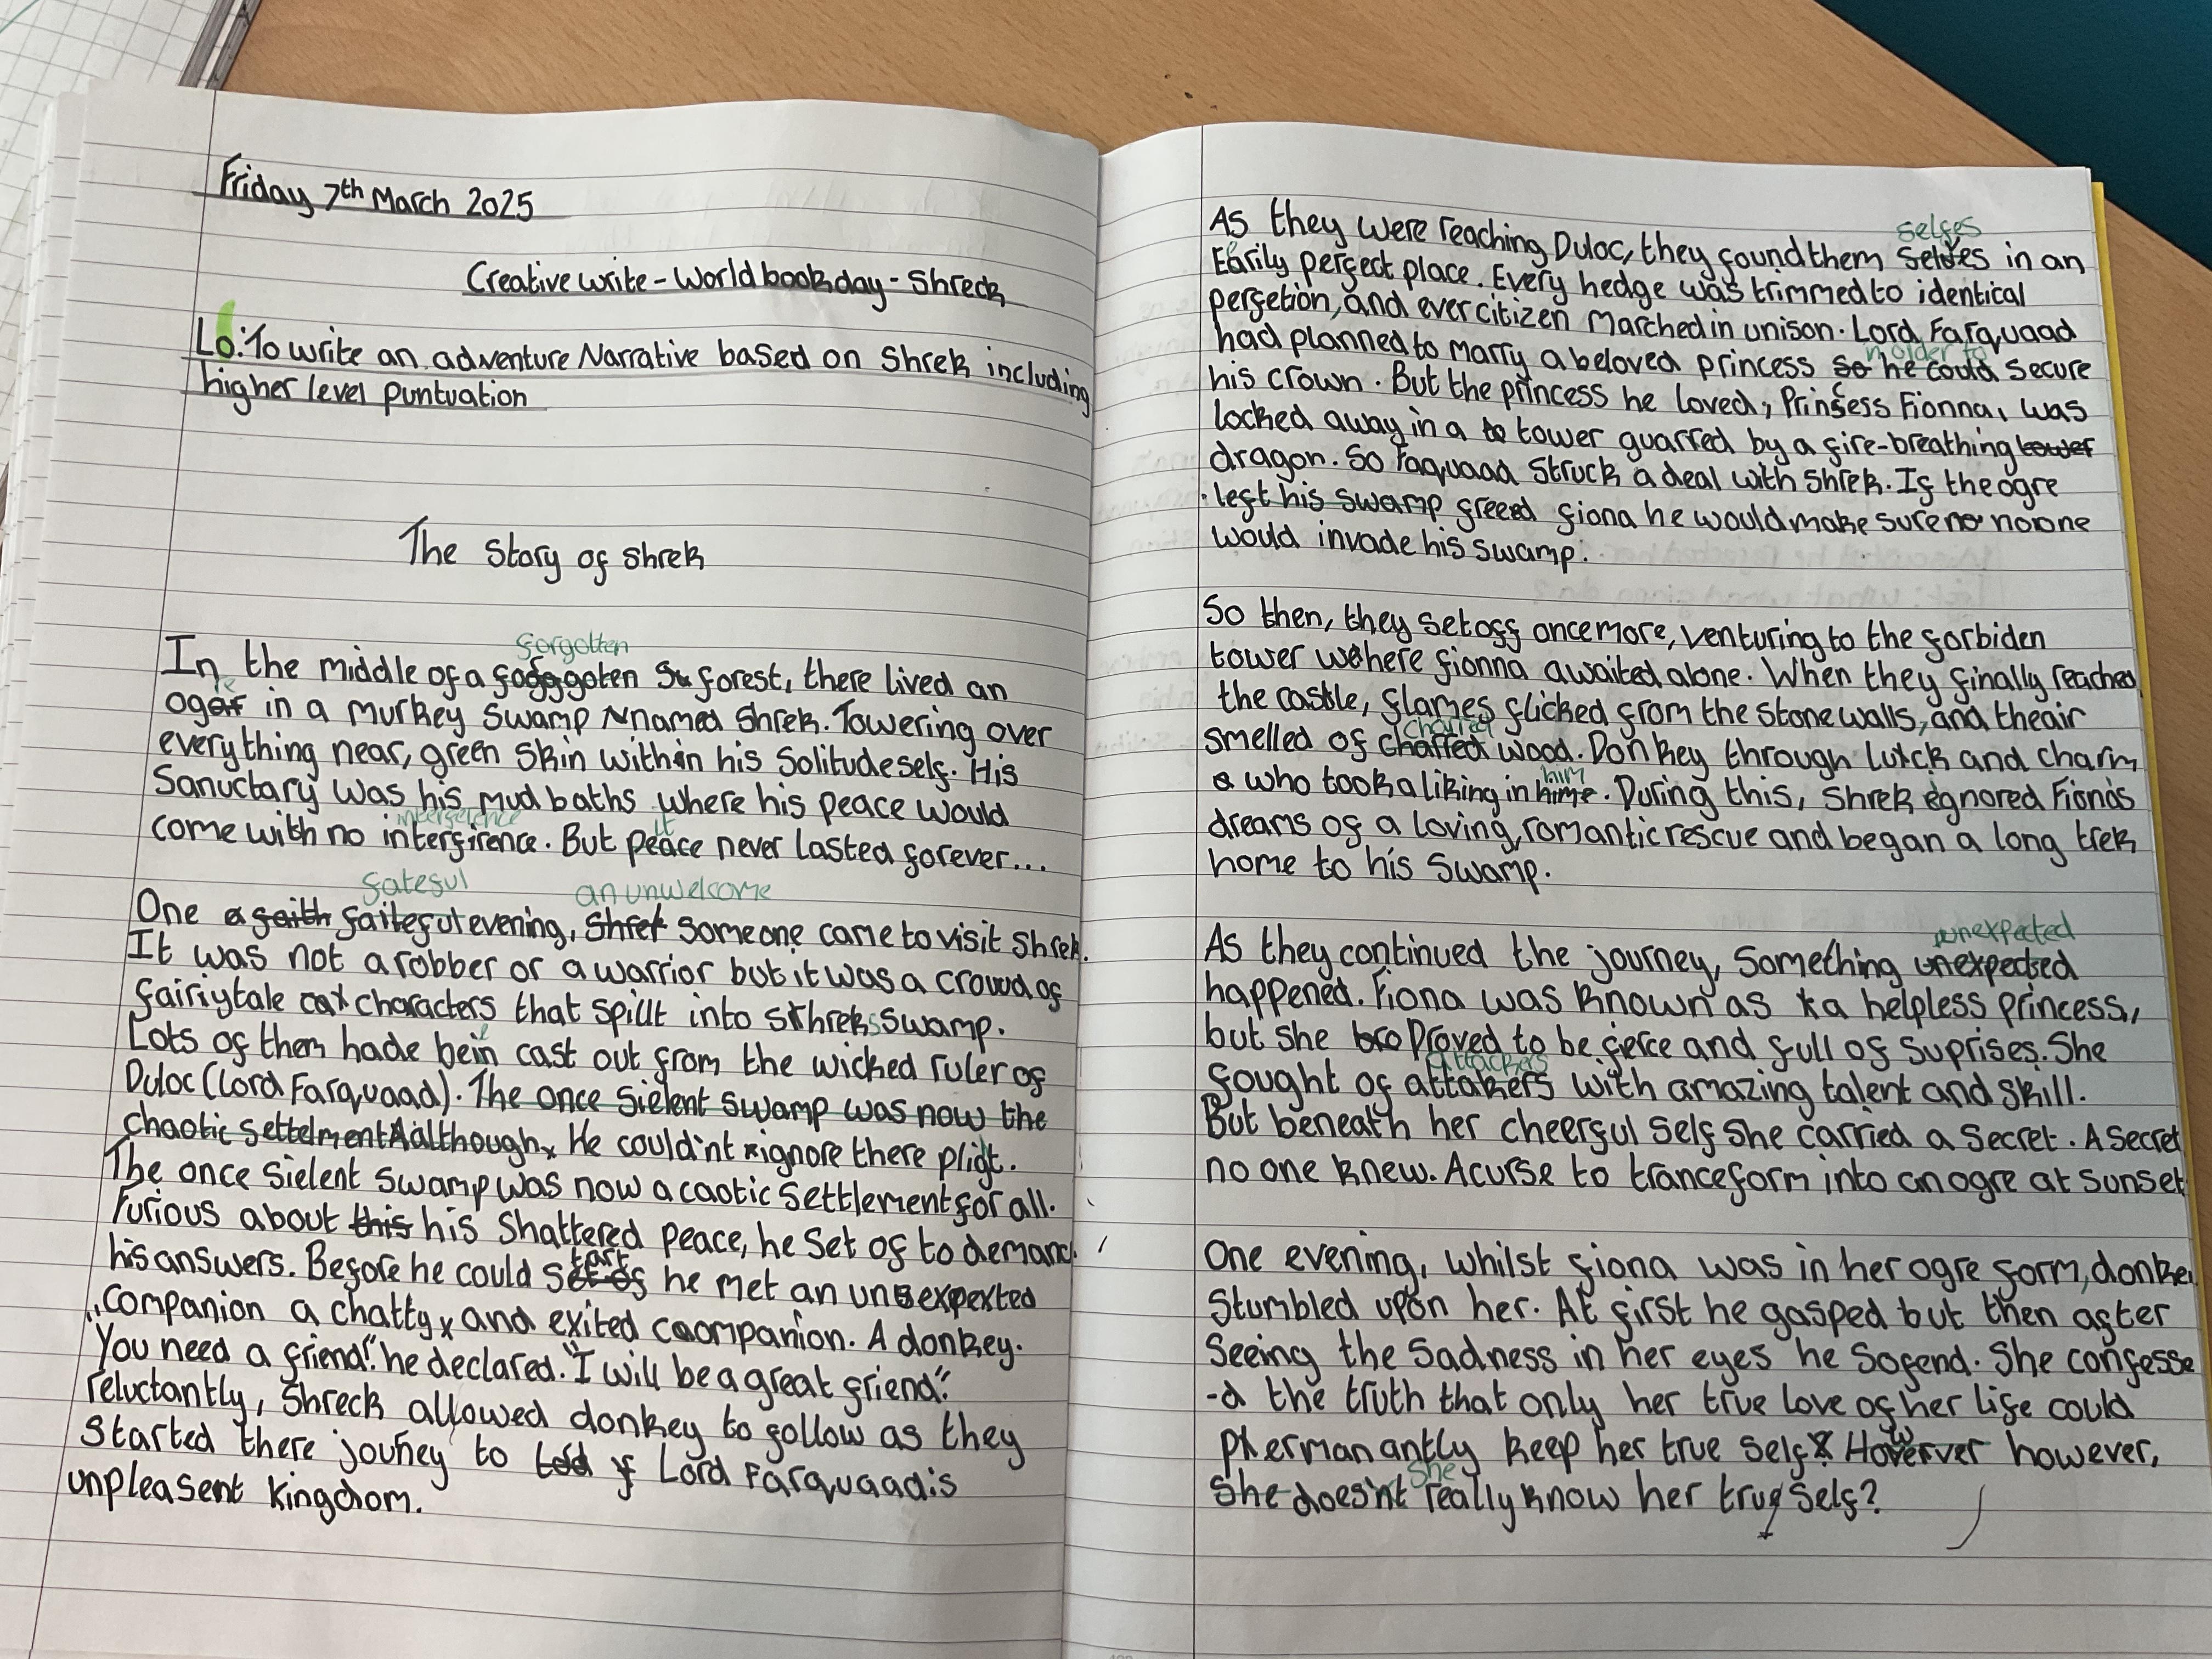 Friday 7th March 2025
Creative write - World book day - Shreck
Lo: To write an adventure Narrative based on Shrek including
higher level puntuation
The Story of Shrek
forgotten
In the middle of a forest, there lived an
in a Murkey Swamp named Shrek. Towering over
everything near, green skin within his Solitude self. His
Sanuctary was his mud baths where his peace would
interference it
come with no interfirence. But peace never lasted forever...
fatesul an unwelcome
One evening, someone came to visit Shrek.
It was not a robber or a warrior but it was a crowd of
fairiytale characters that spillt into shreks swamp.
Lots of them hade been cast out from the wicked ruler of
Duloc (Lord Farquaad). The once sielent swamp was now the
chaotic settelment Although He could'nt ignore there plight.
The once sielent swamp was now a caotic settlement for all.
Furious about this his Shattered peace, he set of to demand
his answers. Before he could start he met an unexpexted
companion a chatty and exited companion. A donkey.
"You need a friend". he declared. "I will be a great friend".
reluctantly, Shreck allowed donkey to follow as they
started there jouney to Lord Farquaad's
unpleasent kingdom.
As they were reaching Duloc, they found them selfes in an
Earily perfect place. Every hedge was trimmed to identical
perfetion, and ever citizen Marched in unison. Lord Farquaad
in order to
had planned to marry a beloved princess so he could secure
his crown. But the princess he loved, Princess Fionna, was
locked away in a tower guarred by a fire-breathing tower
dragon. So Faquaad struck a deal with Shrek. If the ogre
left his swamp freed fiona he would make sure no noone
would invade his swamp.
So then, they set off once more, venturing to the forbiden
tower where fionna awaited alone. When they finally reached
the castle, flames flicked from the stone walls, and the air
charred
smelled of wood. Donkey through luck and charm
him
who took a liking in hime. During this, Shrek egnored Fiona's
dreams of a loving, romantic rescue and began a long trek
home to his swamp.
unexpected
As they continued the journey, Something unexpected
happened. Fiona was known as a helpless princess,
but she Proved to be fierce and full of suprises. She
attackers
fought of attakers with amazing talent and skill.
But beneath her cheerful self she carried a secret. A secret
no one knew. A curse to tranceform into an ogre at sunset
One evening, whilst fiona was in her ogre form, donke
stumbled upon her. At first he gasped but then after
Seeing the sadness in her eyes he sofend. She confesse
-d the truth that only her true love of her life could
permanantly keep her true self. However however,
she
She does'nt really know her true self?